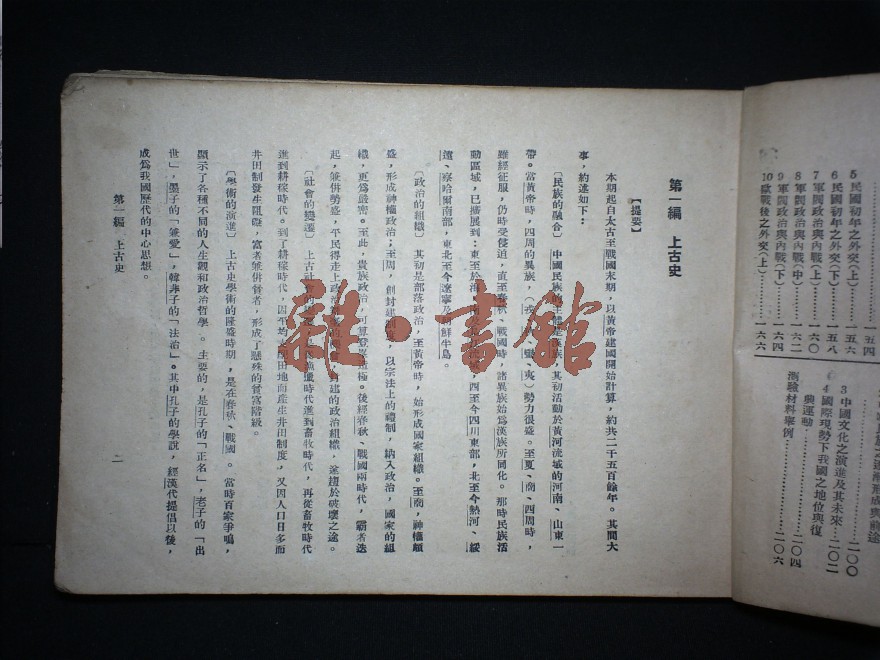 一五四
5 民國初年之外交(上)……一五六
6 民國初年之外交(下)……一五八
7 軍閥政治與內戰(上)……一六〇
8 軍閥政治與內戰(中)……一六二
9 軍閥政治與內戰(下)……一六四
10 歐戰後之外交(上)……一六六
形成與前途
……二〇〇
3 中國文化之演進及其未來……二〇二
4 國際現勢下我國之地位與復
興運動……二〇四
測驗材料舉例……二〇六
第一編 上古史
【提要】
本期起自太古至戰國末期,以黃帝建國開始計算,約共二千五百餘年。其間大
事,約述如下:
〔民族的融合〕 中國民族的主體是漢族,其初活動於黃河流域的河南、山東一
帶。當黃帝時,四周的異族,(戎、狄、蠻、夷)勢力很盛。至夏、商、四周時,
雖經征服,仍時受侵迫,直至春秋、戰國時,諸異族始爲漢族所同化。那時民族活
動區域,已擴展到:東至於海,西至今四川東部,北至今熱河、綏
遠、察哈爾南部,東北至今遼寧及朝鮮半島。
〔政治的組織〕 其初是部落政治,至黃帝時,始形成國家組織。至商,神權頗
盛,形成神權政治;至周,創封建制度,以宗法上的禮制,納入政治,國家的組
織,更爲嚴密。至此,貴族政治,可算登峯造極。後經春秋、戰國兩時代,霸者迭
起,兼併勢盛,平民得走上政治建的政治組織,遂趨於破壞之途。
〔社會的變遷〕 上古社會漁獵時代進到畜牧時代,再從畜牧時代
進到耕稼時代。到了耕稼時代,因平均分配田地而產生井田制度,又因人口日多而
井田制發生阻礙,富者兼併貧者,形成了懸殊的貧富階級。
〔學術的演進〕 上古史學術的隆盛時期,是在春秋、戰國。當時百家爭鳴,
顯示了各種不同的人生觀和政治哲學。主要的,是孔子的「正名」,老子的「出
世」,墨子的「兼愛」,韓非子的「法治」。其中孔子的學說,經漢代提倡以後,
成爲我國歷代的中心思想。
第一編 上古史 一
雜·書館